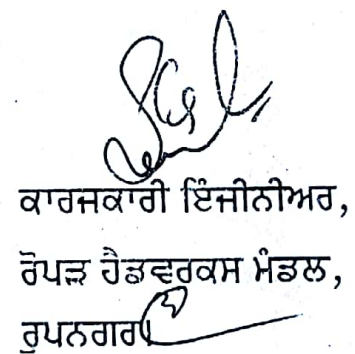 ਕਾਰਜਕਾਰੀ ਇੰਜੀਨੀਅਰ,
ਰੋਪੜ ਹੈਡਵਰਕਸ ਮੰਡਲ,
ਰੂਪਨਗਰ।